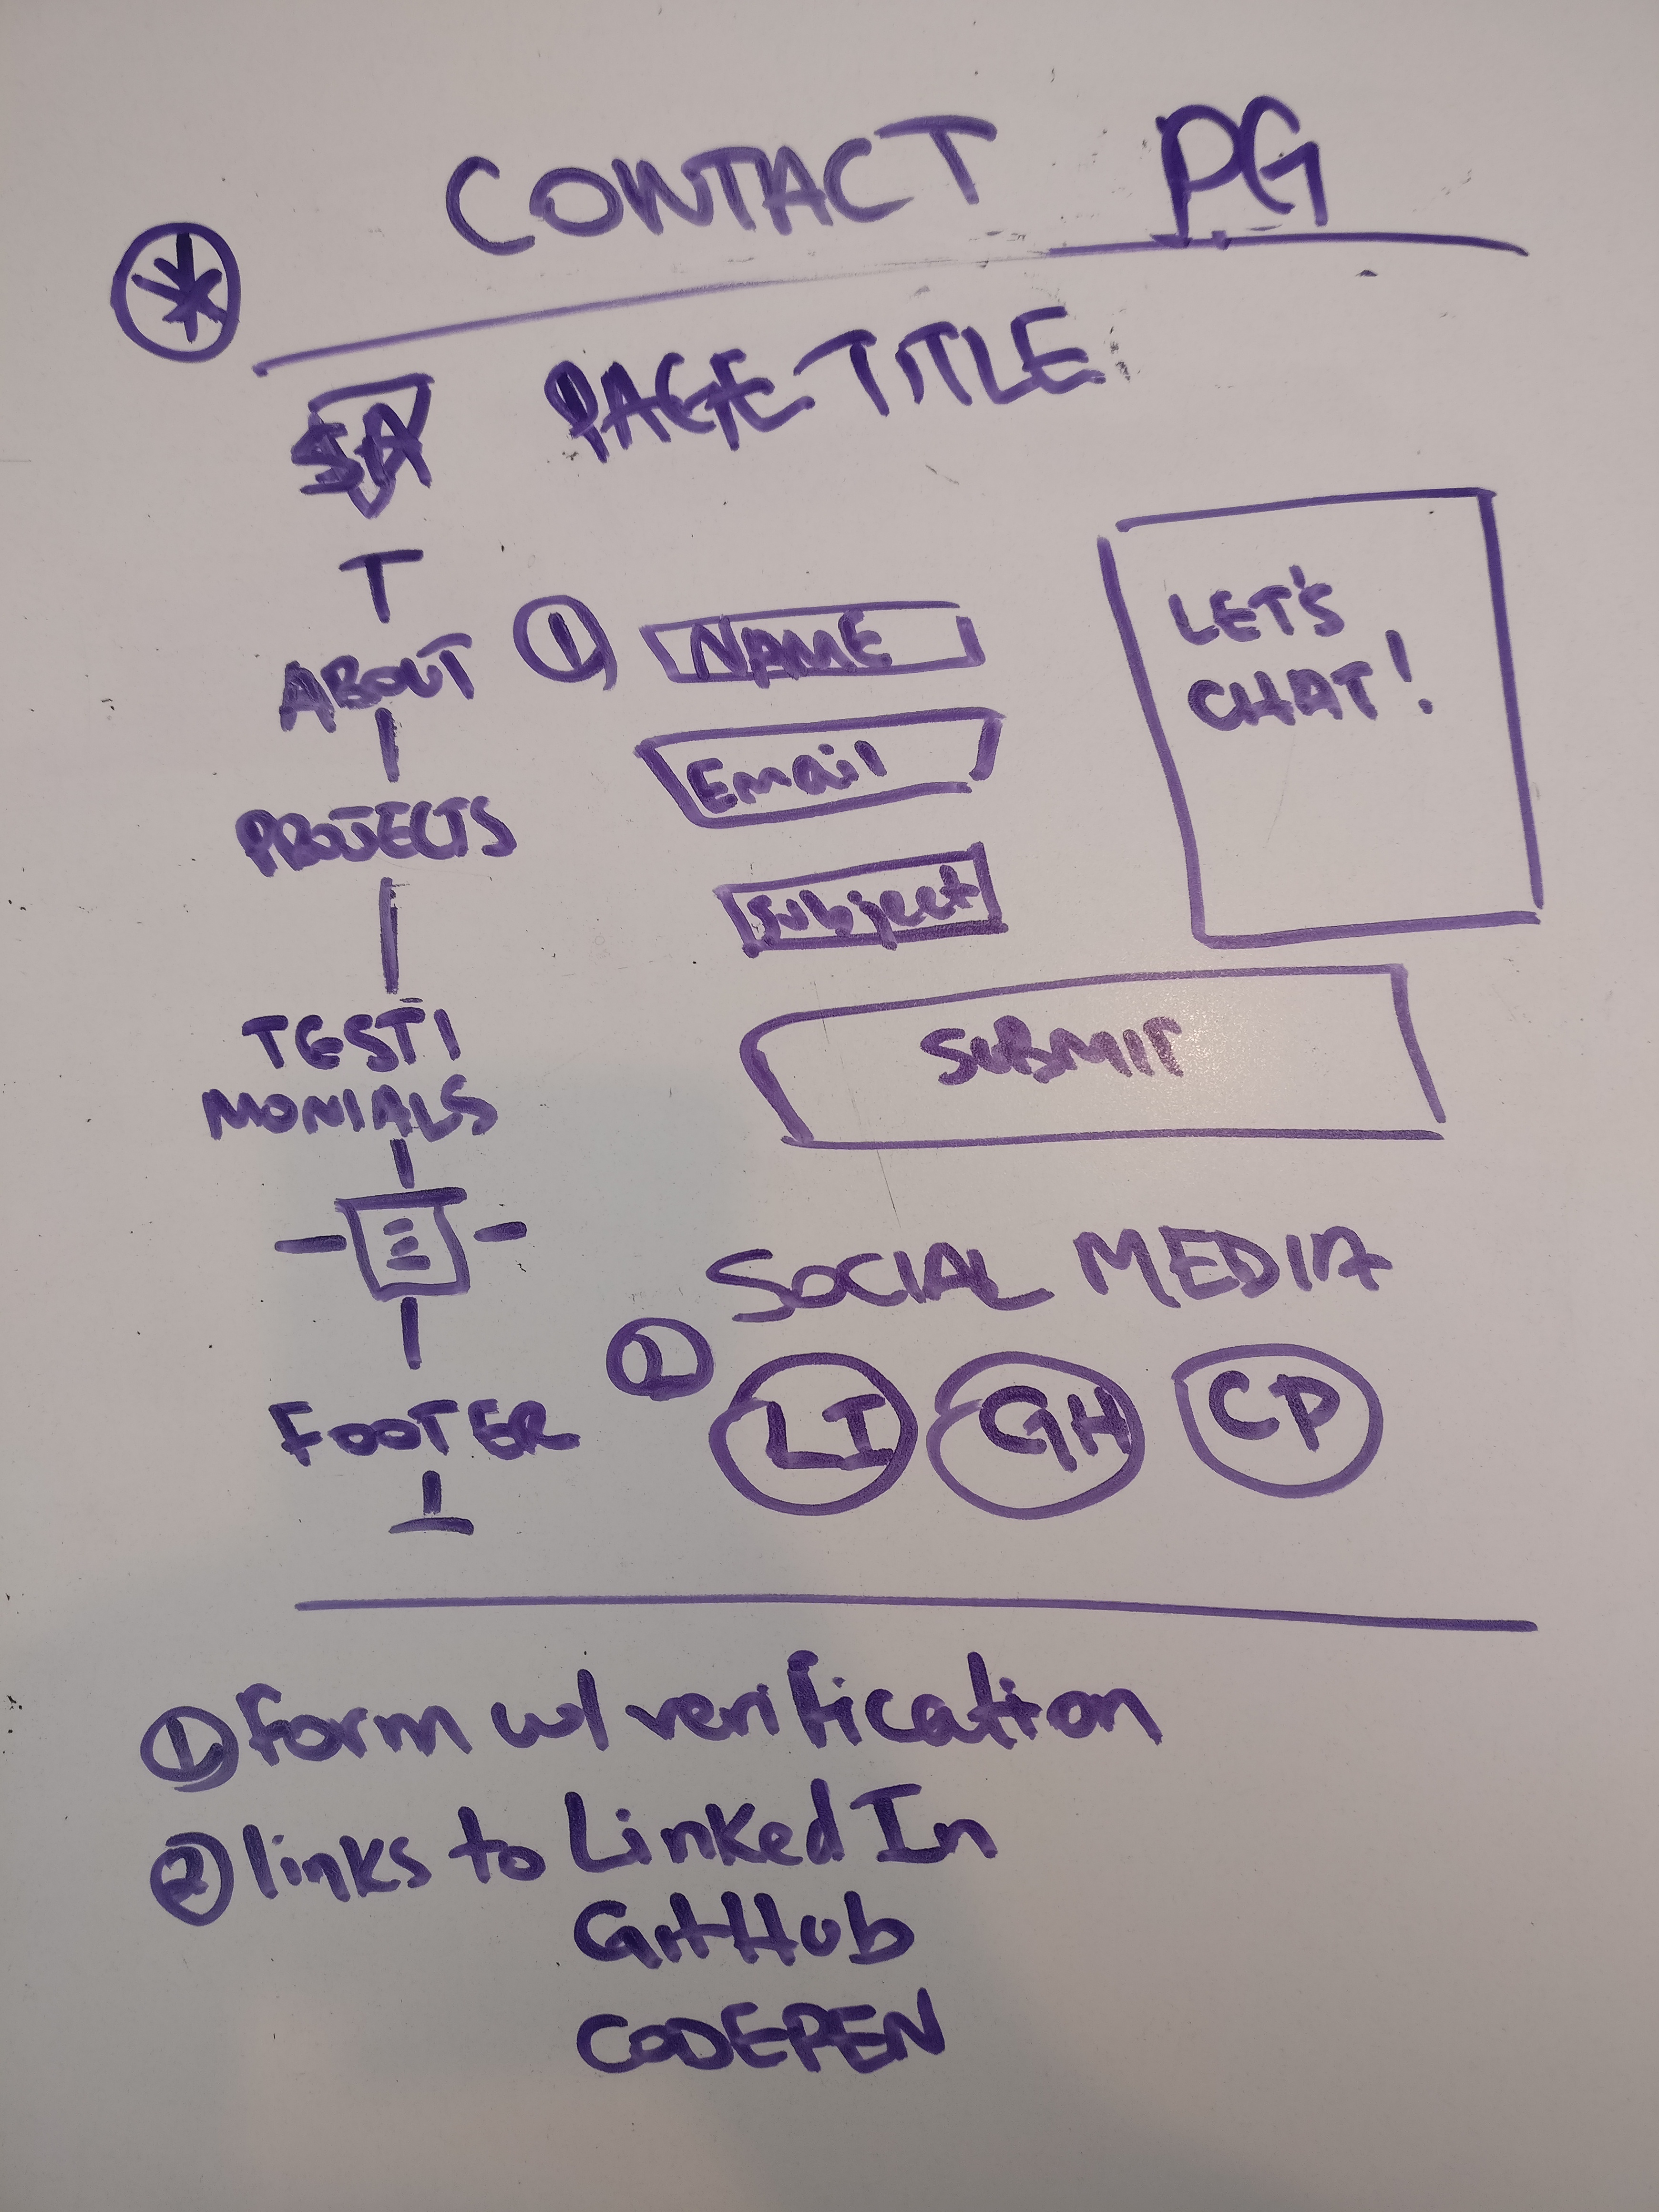 CONTACT PG
SA
PAGE TITLE
ABOUT
PROJECTS
TESTI
MONIALS
FOOTER
1
NAME
Email
Subject
LET'S
CHAT!
SUBMIT
SOCIAL MEDIA
2
LI GH CP
1 Form w/ verification
2 links to LinkedIn
GitHub
CODEPEN